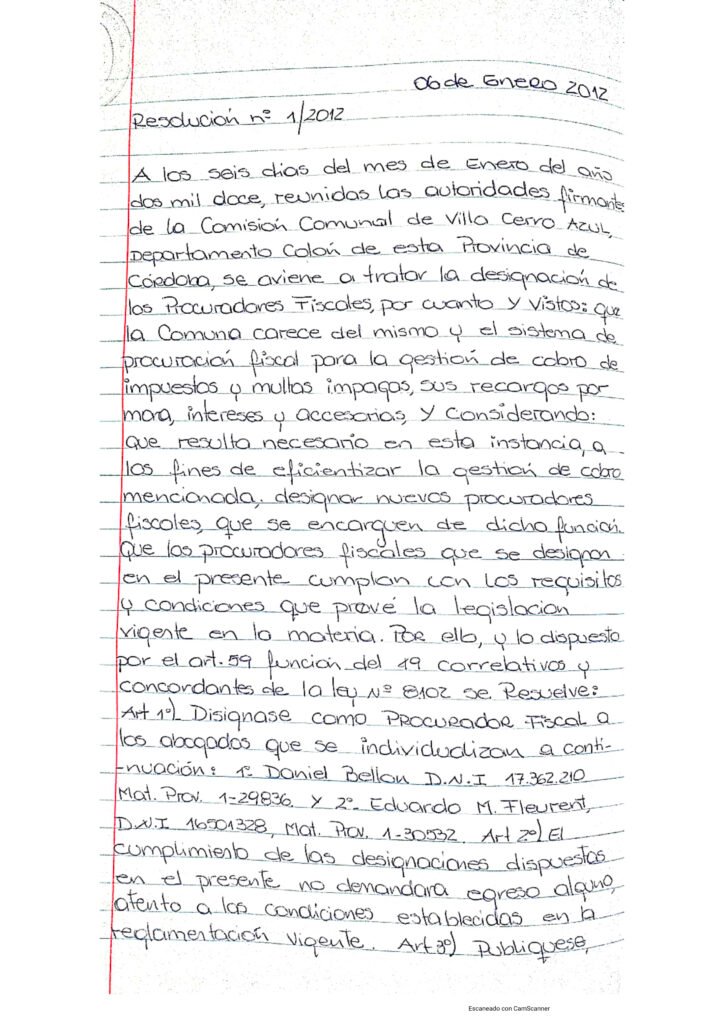 06 de Enero 2012
Resolución nº 1/2012
A los seis dias del mes de Enero del año
dos mil doce, reunidas las autoridades firmantes
de la Comisión Comunal de Villa Cerro AZUL,
Departamento Colón de esta Provincia de
Córdoba, se aviene a tratar la designación de
los Procuradores Fiscales, por cuanto y vistos: que
la Comuna carece del mismo y el sistema de
procuración fiscal para la gestión de cobro de
impuestos y multas impagas, sus recargos por
mora, intereses y accesorias, y considerando:
que resulta necesario en esta instancia, a
los fines de eficientizar la gestión de cobro
mencionada, designar nuevos procuradores
fiscales, que se encarguen de dicha función.
Que los procuradores fiscales que se designan
en el presente cumplan con los requisitos
y condiciones que prevé la legislación
vigente en la materia. Por ello, y lo dispuesto
por el art. 59 función del 19 correlativos y
concordantes de la ley Nº 8102 se Resuelve:
Art 1º) Disignase como PROCURADOR FISCAL a
los abogados que se individualizan a conti-
-nuación: 1º Daniel Bellon D.N.I 17.362.210
Mat. Prov. 1-29836. Y 2º. Eduardo M. Fleurent,
D.N.I 16501328, Mat. Prov. 1-30532. Art 2º) El
cumplimiento de las designaciones dispuestas
en el presente no demandara egreso alguno,
atento a las condiciones establecidas en la
reglamentación vigente. Art 3º) Publiquese,
Escaneado con CamScanner